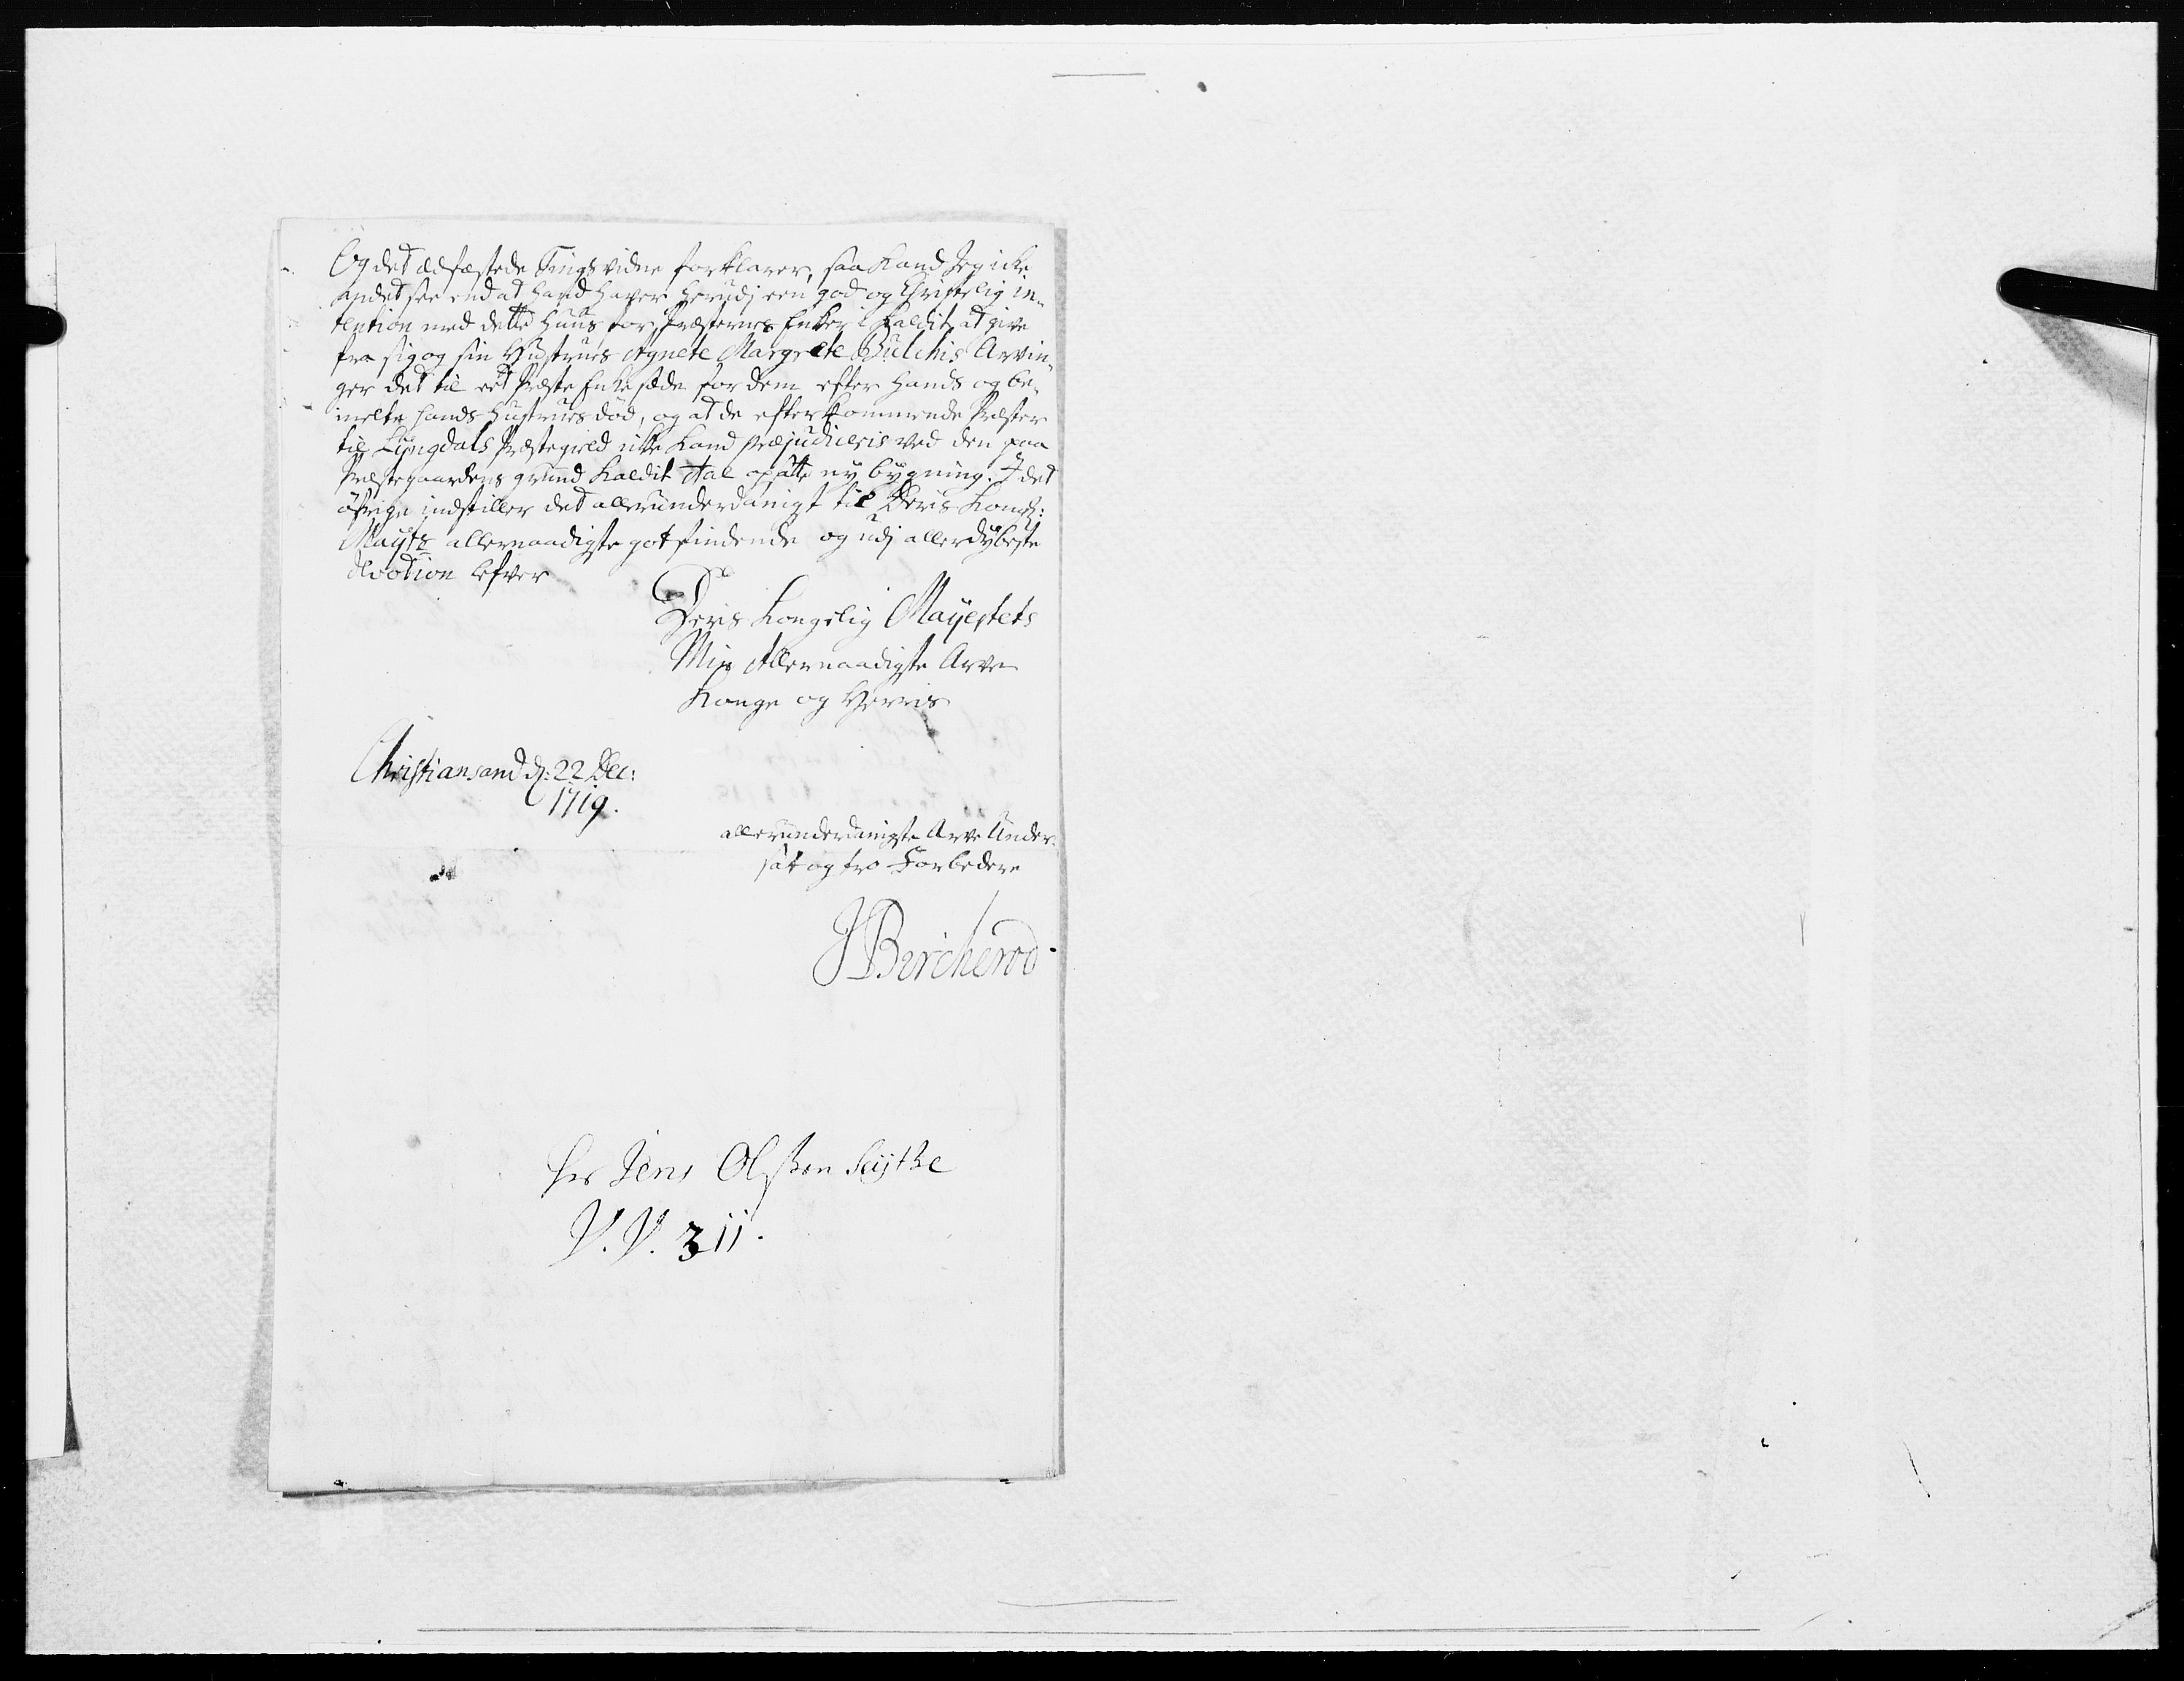 Og det ædfæstede Tingsvidne forklarer, saa kand Jeg icke
andet see end at hand haver herudj een god og Christelig in-
tention med dette huus for Præsternes Enker i Kaldit at give
fra sig og sin Hustrues Agnete Margrete Bulchis Arvin-
ger det til eet Præste Enke sæde for dem efter hands og be-
melte hands Hustrues död, og at de efterkommende Præster
til Lyngdals Præstegield icke kand præjudiceris ved den paa
Præstegaardens grund kaldit Aae opsatte ny bygning. I det
øfrige indstiller det allerunderdanigst til Deris Kongl:
Mayts allernaadigste gotfindende og udj allerdybeste
devotion lefver
Deris Kongelig Mayestets
Min Allernaadigste Arve
Konge og Herris
Christiansand d: 22 Dec:
1719.
allerunderdanigste Arve Under-
sat og tro Forbedere
JBircherod
Her Jens Olssøn Seyske
V. V. 311.